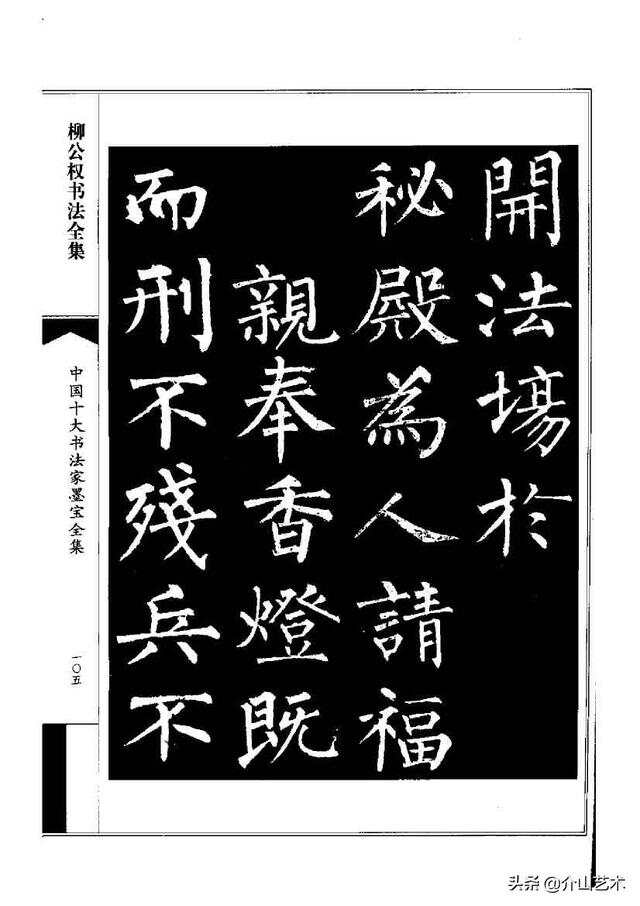 開法場於
秘殿為人請福
親奉香燈既
而刑不殘兵不
柳公权书法全集
中国十大书法家墨宝全集
一〇五
头条@介山艺术